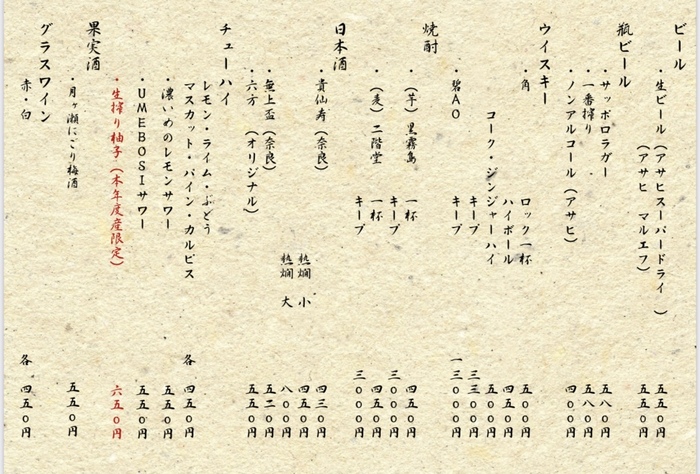 ビール
・生ビール（アサヒスーパードライ） 五五〇円
（アサヒ マルエフ） 五五〇円
瓶ビール
・サッポロラガー 五八〇円
・一番搾り 五八〇円
・ノンアルコール（アサヒ） 四〇〇円
ウイスキー
・角 ロック一杯 五〇〇円
ハイボール 四五〇円
コーク・ジンジャーハイ 五〇〇円
キープ 三三〇〇円
・碧AO キープ 一三〇〇〇円
焼酎
・（芋）黒霧島 一杯 四五〇円
キープ 三〇〇〇円
・（麦）二階堂 一杯 四五〇円
キープ 三〇〇〇円
日本酒
・貴仙寿（奈良） 四三〇円
熱燗 小 四五〇円
熱燗 大 八〇〇円
・無上盃（奈良） 五二〇円
・六方（オリジナル） 五五〇円
チューハイ
レモン・ライム・ぶどう
マスカット・パイン・カルピス 各四五〇円
・濃いめのレモンサワー 五五〇円
・UMEBOSIサワー 五五〇円
・生搾り柚子（本年度産限定） 六五〇円
果実酒
・月ヶ瀬にごり梅酒 五五〇円
グラスワイン
赤・白 各四五〇円